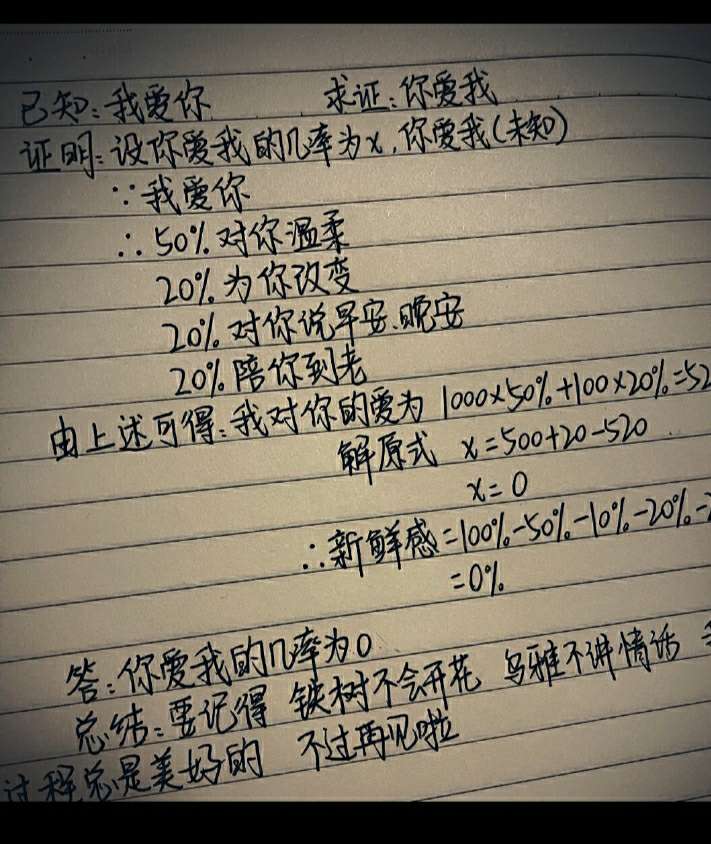 已知：我爱你 求证：你爱我
证明：设你爱我的几率为x，你爱我(未知)
∵我爱你
∴50%对你温柔
20%为你改变
20%对你说早安、晚安
20%陪你到老
由上述可得：我对你的爱为1000×50%+100×20%=52
解原式 x=500+20-520
x=0
∴新鲜感=100%-50%-10%-20%-
=0%
答：你爱我的几率为0
总结：要记得 铁树不会开花 乌雅不讲情话
过程总是美好的 不过再见啦